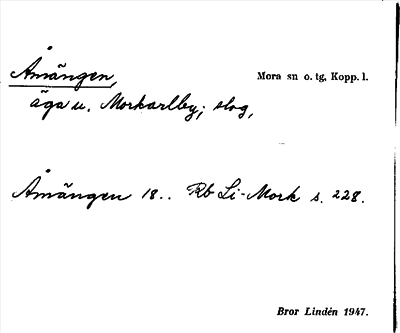 Åmängen, Mora sn o. tg, Kopp. l.
äga u. Morkarlby; slog,
Åmängen 18.. Rb Li-Mork s. 228.
Bror Lindén 1947.